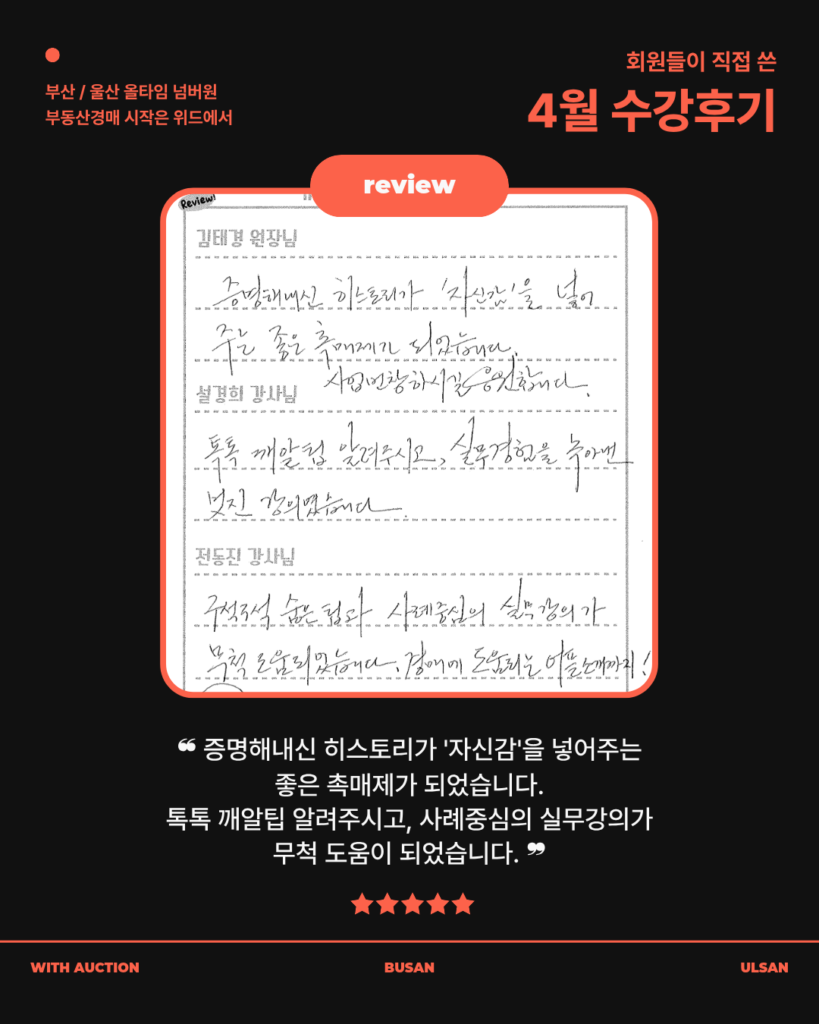 부산 / 울산 올타임 넘버원
부동산경매 시작은 위드에서
회원들이 직접 쓴
4월 수강후기
review
Review!
김태경 원장님
증명해내신 히스토리가 '자신감'을 넣어
주는 좋은 촉매제가 되었습니다.
사업번창하시길 응원합니다.
설경희 강사님
톡톡 깨알팁 알려주시고, 실무경험을 녹아낸
멋진 강의였습니다.
전동진 강사님
구석구석 숨은 팁과 사례중심의 실무강의가
무척 도움되었습니다. 경매에 도움되는 어플소개까지!
❝ 증명해내신 히스토리가 '자신감'을 넣어주는
좋은 촉매제가 되었습니다.
톡톡 깨알팁 알려주시고, 사례중심의 실무강의가
무척 도움이 되었습니다. ❞
WITH AUCTION
BUSAN
ULSAN